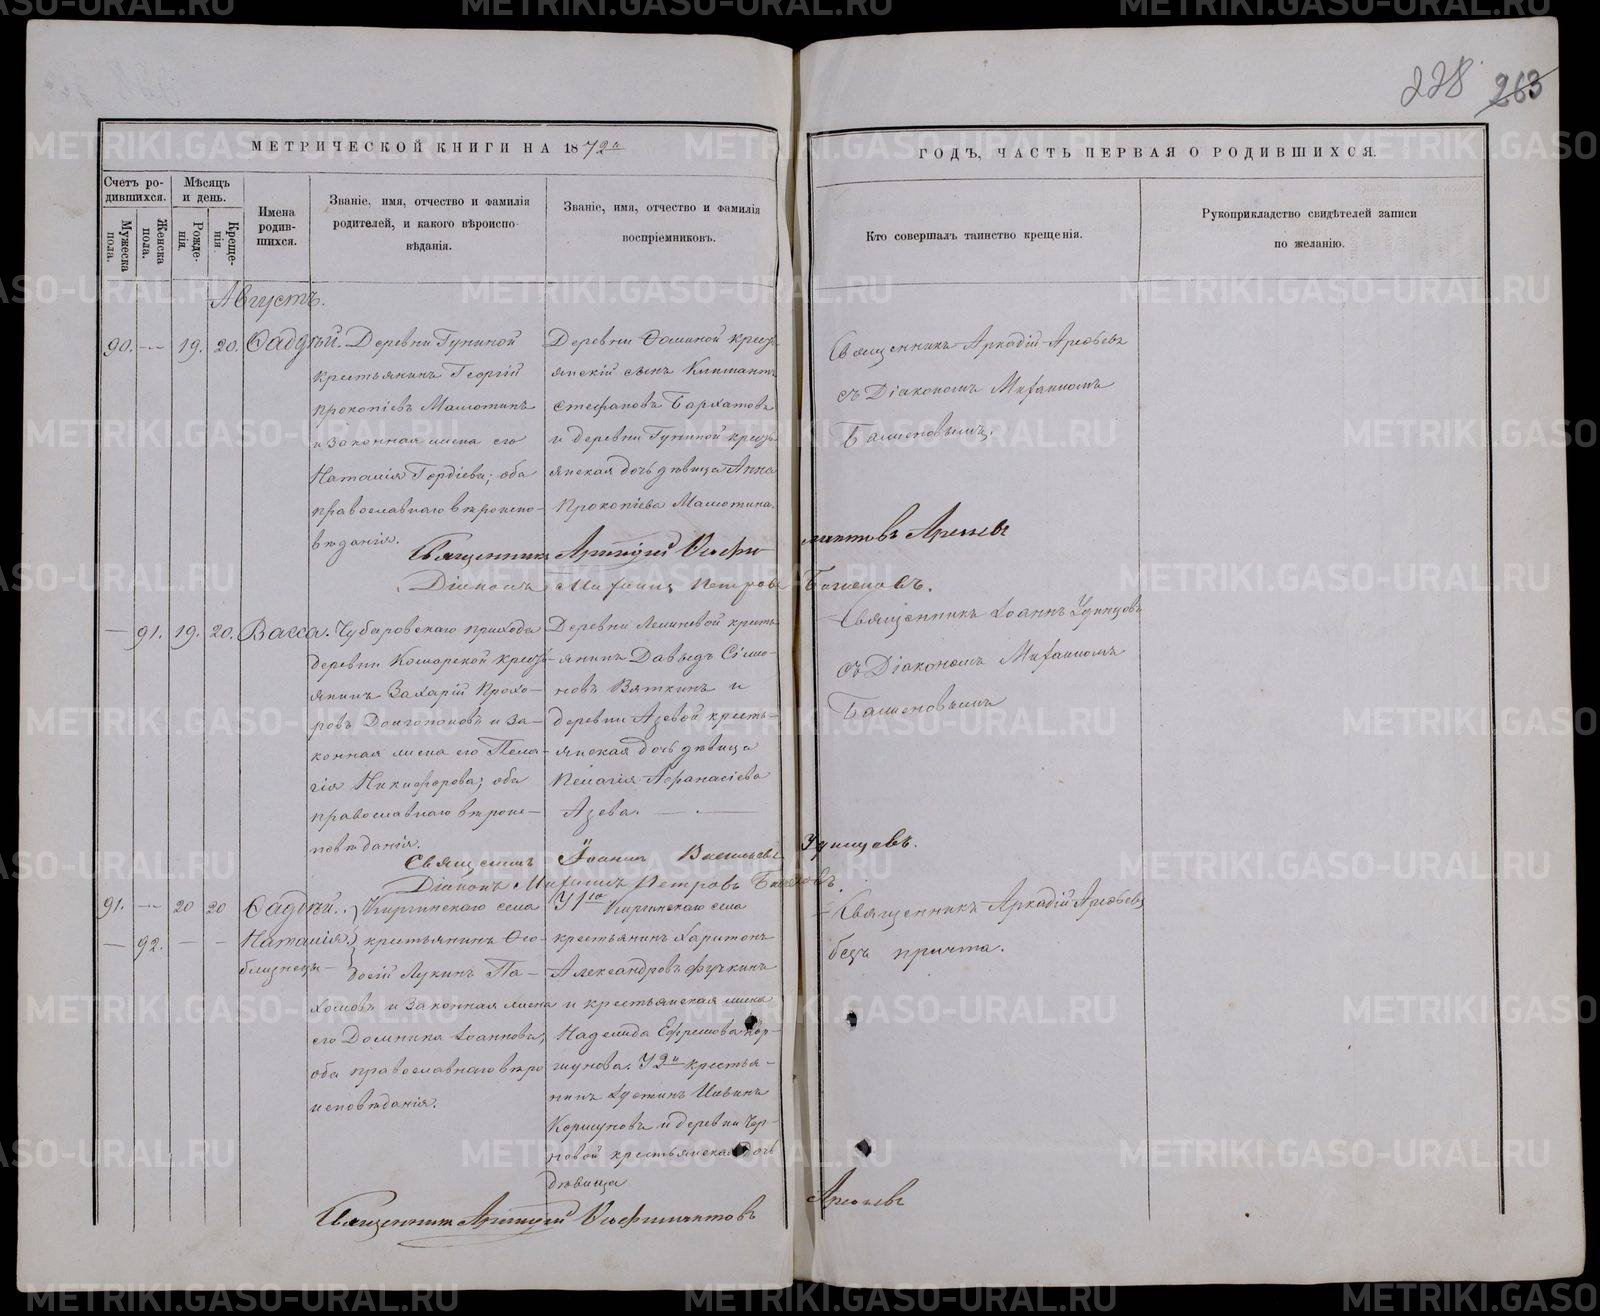 228 263
МЕТРИЧЕСКОЙ КНИГИ НА 1872й
ГОДЪ, ЧАСТЬ ПЕРВАЯ О РОДИВШИХСЯ.
Счетъ ро-
дившихся.
Мужеска
пола.
Женска
пола.
Мѣсяцъ
и день.
Рожде-
нія.
Креще-
нія
Имена
родив-
шихся.
Званіе, имя, отчество и фамилія
родителей, и какого вѣроиспо-
вѣданія.
Званіе, имя, отчество и фамилія
воспріемниковъ.
Кто совершалъ таинство крещенія.
Рукоприкладство свидѣтелей записи
по желанію.
Августъ.
90. — 19. 20. Ѳаддѣй.
Деревни Гуниной
крестьянинъ Георгій
Прокопіевъ Мамотинъ
и законная жена его
Наталія Гордіева; оба
православнаго вѣроиспо-
вѣданія.
Деревни Ѳоминой крес-
янскій сынъ
Стефановъ Бархатовъ
и деревни Гуниной крес-
янская дочь дѣвица Анна
Прокопіева Мамотина.
Священникъ Аркадій Арефьевъ
съ Діакономъ Михаиломъ
Баженовымъ.
Священникъ Аркадій
Арефьевъ
Діаконъ Михаилъ Петровъ Баженовъ.
— 91. 19. 20. Васса.
Чубаровскаго прихода
деревни Комарской крес-
янинъ Захарій Прохо-
ровъ Долгополовъ и за-
конная жена его Пела-
гія Никифорова; оба
православнаго вѣроис-
повѣданія.
Деревни крестья-
янинъ Давыдъ Сімо-
новъ Вяткинъ и
деревни Азевой кресть-
янская дочь дѣвица
Пелагія Аѳанасіева
Азева. — —
Священникъ Іоаннъ Удинцовъ
съ Діакономъ Михаиломъ
Баженовымъ
Священникъ Іоаннъ Васильевъ Удинцевъ.
Діаконъ Михаилъ Петровъ Баженовъ.
91. — 20 20 Ѳаддѣй.
— 92. — — Наталія.
близнецы
Киргинскаго села
крестьянинъ Ѳео-
досій Лукинъ Па-
хомовъ и законная жена
его Домника Іоаннова;
оба православнаго вѣро
исповѣданія.
У 1го Киргинскаго села
крестьянинъ Харитонъ
Александровъ Фучкинъ
и крестьянская жена
Надежида Ефремова Кор-
шунова. У 2й крестья-
нинъ Іустинъ Ивинъ
Коршуновъ и деревни Чер-
новой крестьянская дочь
дѣвица
Священникъ Аркадій Арефьевъ
безъ причта.
Священникъ Аркадій
Арефьевъ
METRIKI.GASO-URAL.RU